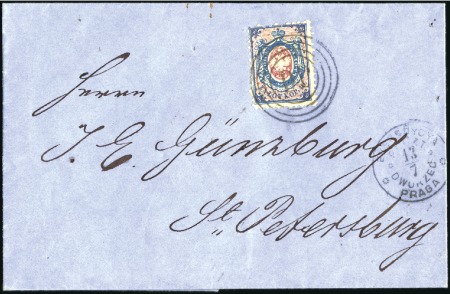 Herrn
J. E. Günzburg
St. Petersburg
13
7
DWORZEC
PRAGA